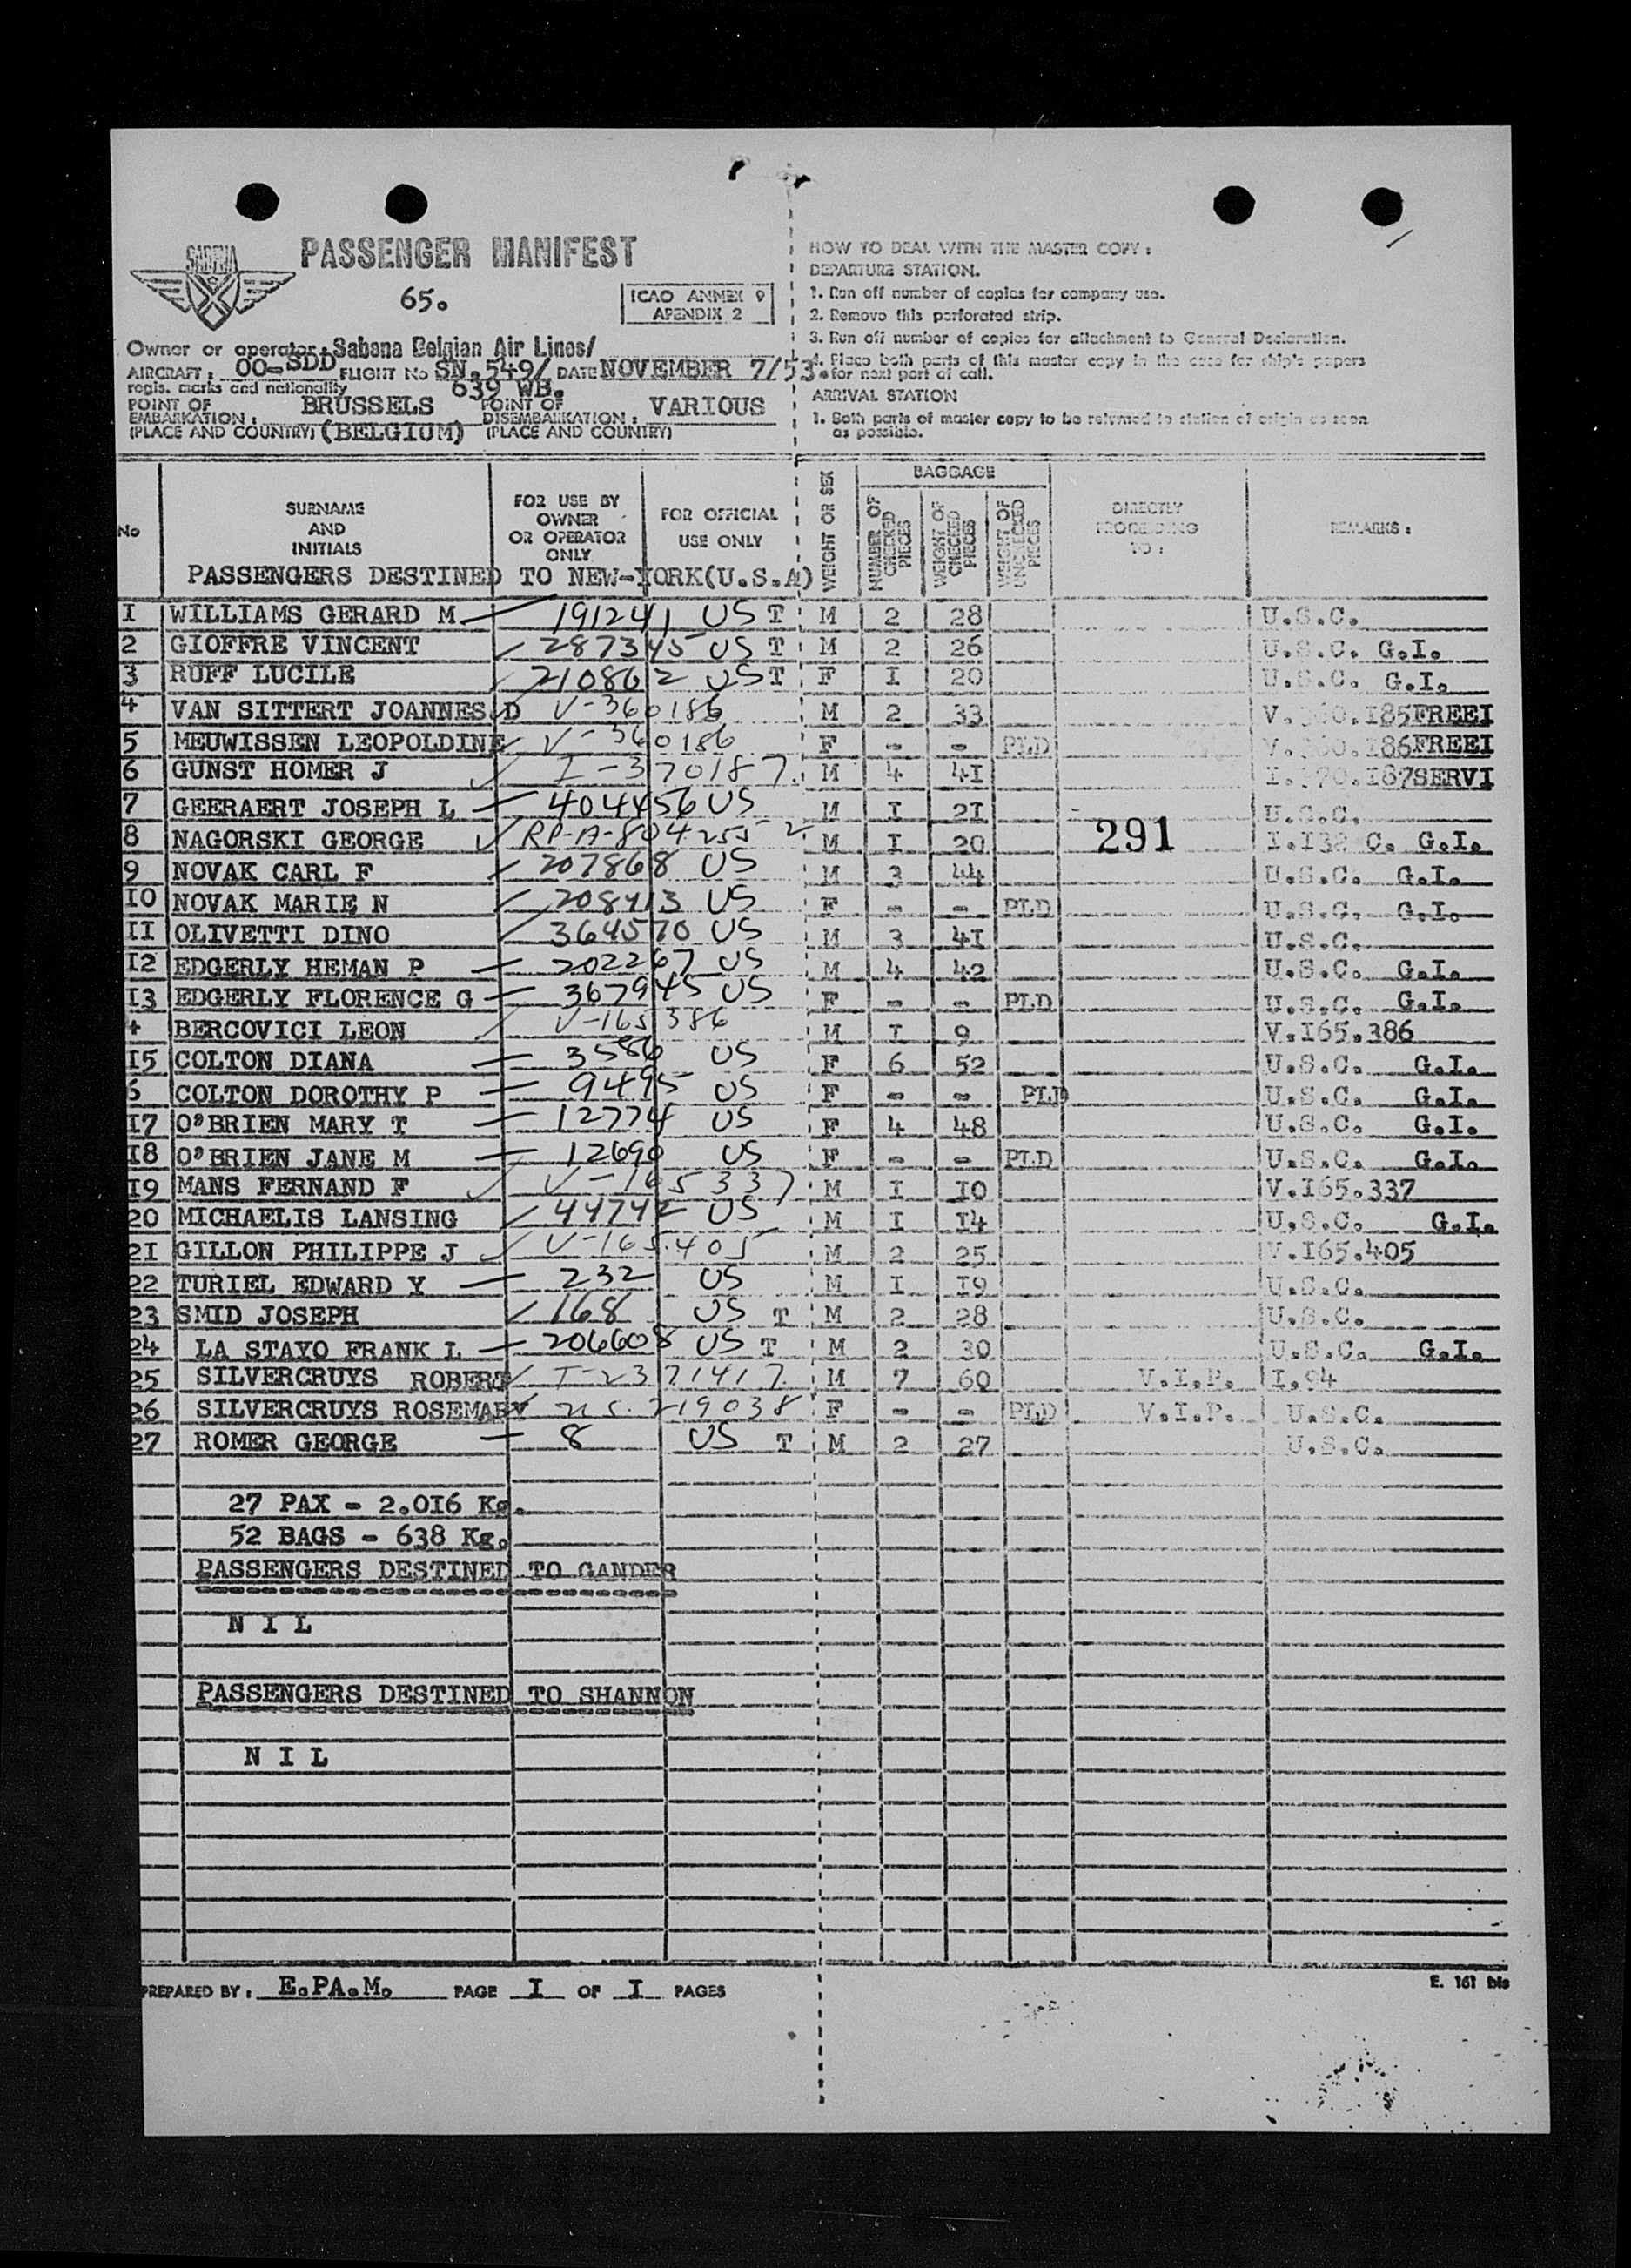 SABENA
PASSENGER MANIFEST
65.
ICAO ANNEX 9
APENDIX 2
Owner or operator: Sabena Belgian Air Lines/
AIRCRAFT: OO-SDD FLIGHT No SN.549/ DATE NOVEMBER 7/53.
regis. marks and nationality 639 WB.
POINT OF EMBARKATION: BRUSSELS POINT OF DISEMBARKATION: VARIOUS
(PLACE AND COUNTRY) (BELGIUM) (PLACE AND COUNTRY)
HOW TO DEAL WITH THE MASTER COPY:
DEPARTURE STATION.
1. Run off number of copies for company use.
2. Remove this perforated strip.
3. Run off number of copies for attachment to General Declaration.
4. Place both parts of this master copy in the case for ship's papers
for next port of call.
ARRIVAL STATION
1. Both parts of master copy to be returned to station of origin as soon
as possible.
No SURNAME AND INITIALS FOR USE BY OWNER OR OPERATOR ONLY FOR OFFICIAL USE ONLY WEIGHT OR SEX BAGGAGE NUMBER OF CHECKED PIECES WEIGHT OF CHECKED PIECES WEIGHT OF UNCHECKED PIECES DIRECTLY PROCEEDING TO: REMARKS:
PASSENGERS DESTINED TO NEW-YORK(U.S.A)
I WILLIAMS GERARD M 191241 US T M 2 28 U.S.C.
2 GIOFFRE VINCENT 287345 US T M 2 26 U.S.C. G.I.
3 RUFF LUCILE 210862 US T F I 20 U.S.C. G.I.
4 VAN SITTERT JOANNES.D V-360186 M 2 33 V.360.I85FREEI
5 MEUWISSEN LEOPOLDINE V-360186 F - - PLD V.360.I86FREEI
6 GUNST HOMER J I-370187 M 4 4I I.370.I87SERVI
7 GEERAERT JOSEPH L 404456 US M I 2I U.S.C.
8 NAGORSKI GEORGE RP-A-8042552 M I 20 291 I.I32 C. G.I.
9 NOVAK CARL F 207868 US M 3 44 U.S.C. G.I.
I0 NOVAK MARIE N 208413 US F - - PLD U.S.C. G.I.
II OLIVETTI DINO 364570 US M 3 4I U.S.C.
I2 EDGERLY HEMAN P 202267 US M 4 42 U.S.C. G.I.
I3 EDGERLY FLORENCE G 367945 US F - - PLD U.S.C. G.I.
4 BERCOVICI LEON V-165386 M I 9 V.I65.386
I5 COLTON DIANA 3586 US F 6 52 U.S.C. G.I.
6 COLTON DOROTHY P 9495 US F - - PLD U.S.C. G.I.
I7 O'BRIEN MARY T 12774 US F 4 48 U.S.C. G.I.
I8 O'BRIEN JANE M 12690 US F - - PLD U.S.C. G.I.
I9 MANS FERNAND F V-165337 M I I0 V.I65.337
20 MICHAELIS LANSING 44742 US M I I4 U.S.C. G.I.
2I GILLON PHILIPPE J V-165.405 M 2 25 V.I65.405
22 TURIEL EDWARD Y 232 US M I I9 U.S.C.
23 SMID JOSEPH 168 US T M 2 28 U.S.C.
24 LA STAYO FRANK L 206608 US T M 2 30 U.S.C. G.I.
25 SILVERCRUYS ROBERT I-2371417 M 7 60 V.I.P. I.94
26 SILVERCRUYS ROSEMARY U.S. 219038 F - - PLD V.I.P. U.S.C.
27 ROMER GEORGE 8 US T M 2 27 U.S.C.
27 PAX - 2.0I6 Kg.
52 BAGS - 638 Kg.
PASSENGERS DESTINED TO GANDER
N I L
PASSENGERS DESTINED TO SHANNON
N I L
PREPARED BY: E.PA.M. PAGE I OF I PAGES
E. 161 bis